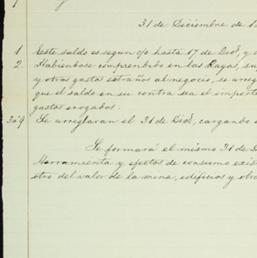 31 de Diciembre de 1
1 Este saldo es segun c/c hasta 17 de Dicē, y
2 Habiendose comprendido en las Rayas, su
y otros gastos estraños al negocio, se arreg
que el saldo en su contra sea el import
gastos erogados.
3 a 9 Se arreglaran el 31 de Dicē, cargando
Se formará el mismo 31 de D
Herramienta y efectos de consumo exis
otro del valor de la mina, edificios y otro